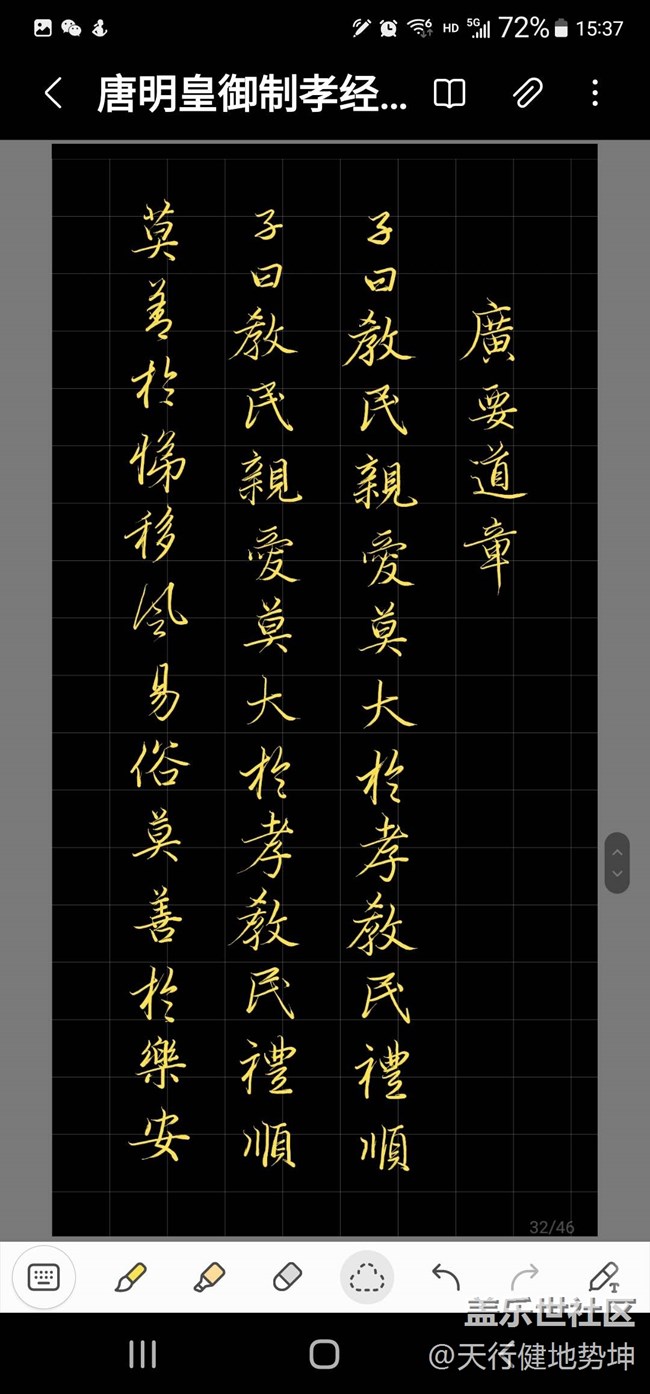 HD 5G 72% 15:37
唐明皇御制孝经...
廣要道章
子曰教民親愛莫大於孝教民禮順
子曰教民親愛莫大於孝教民禮順
莫善於悌移風易俗莫善於樂安
32/46
盖乐世社区
@天行健地势坤